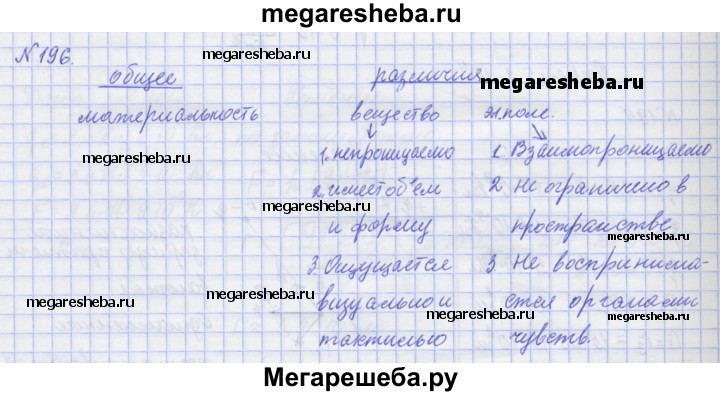 megaresheba.ru
№196.
megaresheba.ru
общее различия
megaresheba.ru
материальность вещество эл.поле.
megaresheba.ru
1. непроницаемо 1. Взаимопроницаемо
2. имеет объем 2 Не ограничено в
megaresheba.ru
и форму пространстве
3. Ощущается 3. Не воспринима-
megaresheba.ru megaresheba.ru megaresheba.ru
визуально и ется органами
тактильно чувств.
Мегарешеба.ру